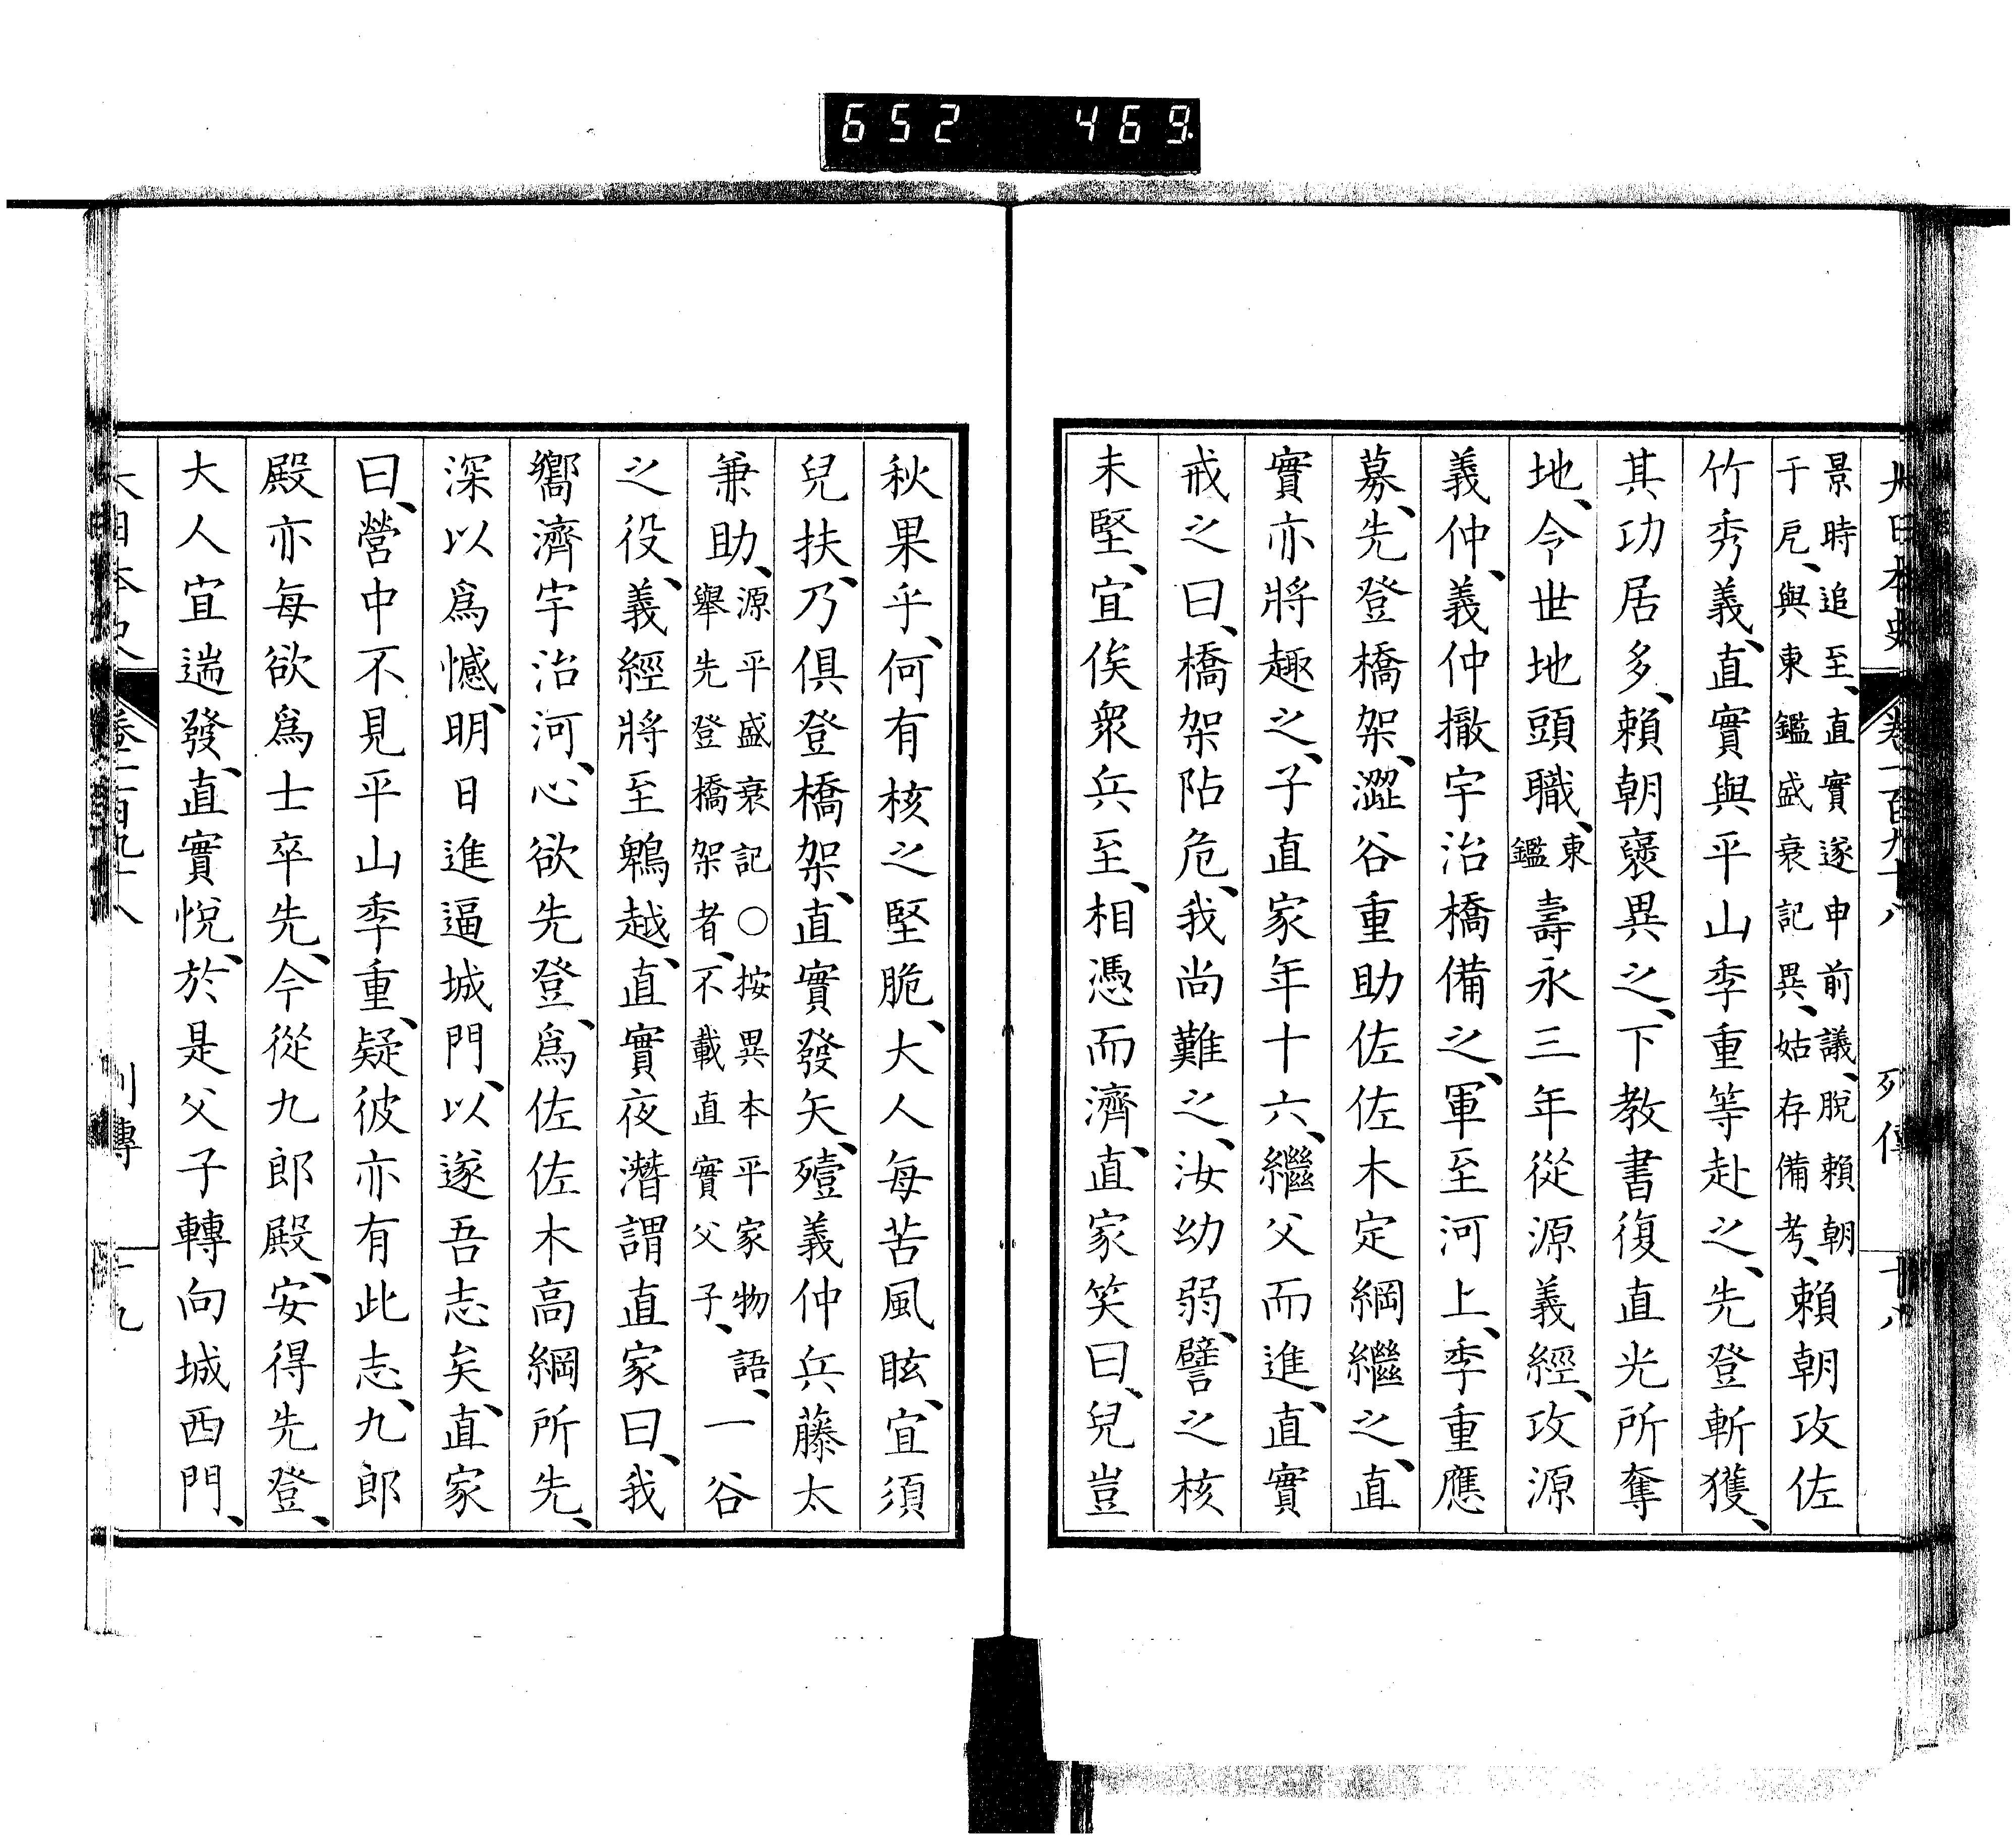 652 469.
大日本史 卷一百九十八 列傳 十八
景時追至、直實遂申前議、脫賴朝
于戹、與東鑑盛衰記異、姑存備考、
賴朝攻佐
竹秀義、直實與平山季重等赴之、先登斬獲、
其功居多、賴朝褒異之、下教書復直光所奪
地、令世地頭職、東鑑壽永三年從源義經、攻源
義仲、義仲撤宇治橋備之、軍至河上、季重應
募、先登橋架、澀谷重助佐佐木定綱繼之、直
實亦將趣之、子直家年十六、繼父而進、直實
戒之曰、橋架阽危、我尚難之、汝幼弱、譬之核
未堅、宜俟衆兵至、相憑而濟、直家笑曰、兒豈
秋果乎、何有核之堅脆、大人每苦風眩、宜須
兒扶、乃俱登橋架、直實發矢、殪義仲兵藤太
兼助、
源平盛衰記○按異本平家物語、
舉先登橋架者、不載直實父子、
一谷
之役、義經將至鵯越、直實夜潛謂直家曰、我
嚮濟宇治河、心欲先登、爲佐佐木高綱所先、
深以爲憾、明日進逼城門、以遂吾志矣、直家
曰、營中不見平山季重、疑彼亦有此志、九郎
殿亦每欲爲士卒先、今從九郎殿、安得先登、
大人宜遄發、直實悅、於是父子轉向城西門、
大日本史 卷一百九十八 列傳 十九